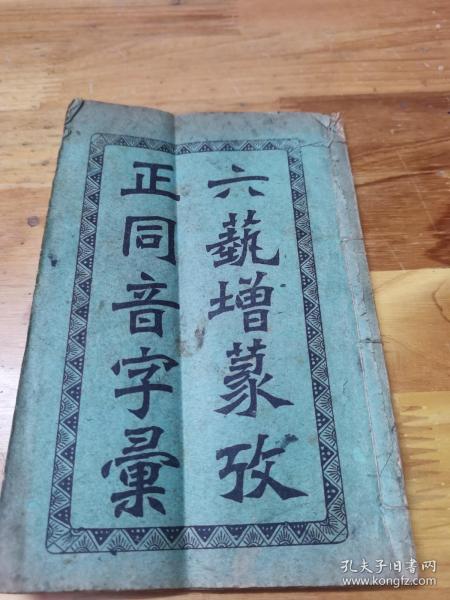 六藝增蒙攷
正同音字彙
孔夫子旧书网
www.kongfz.com